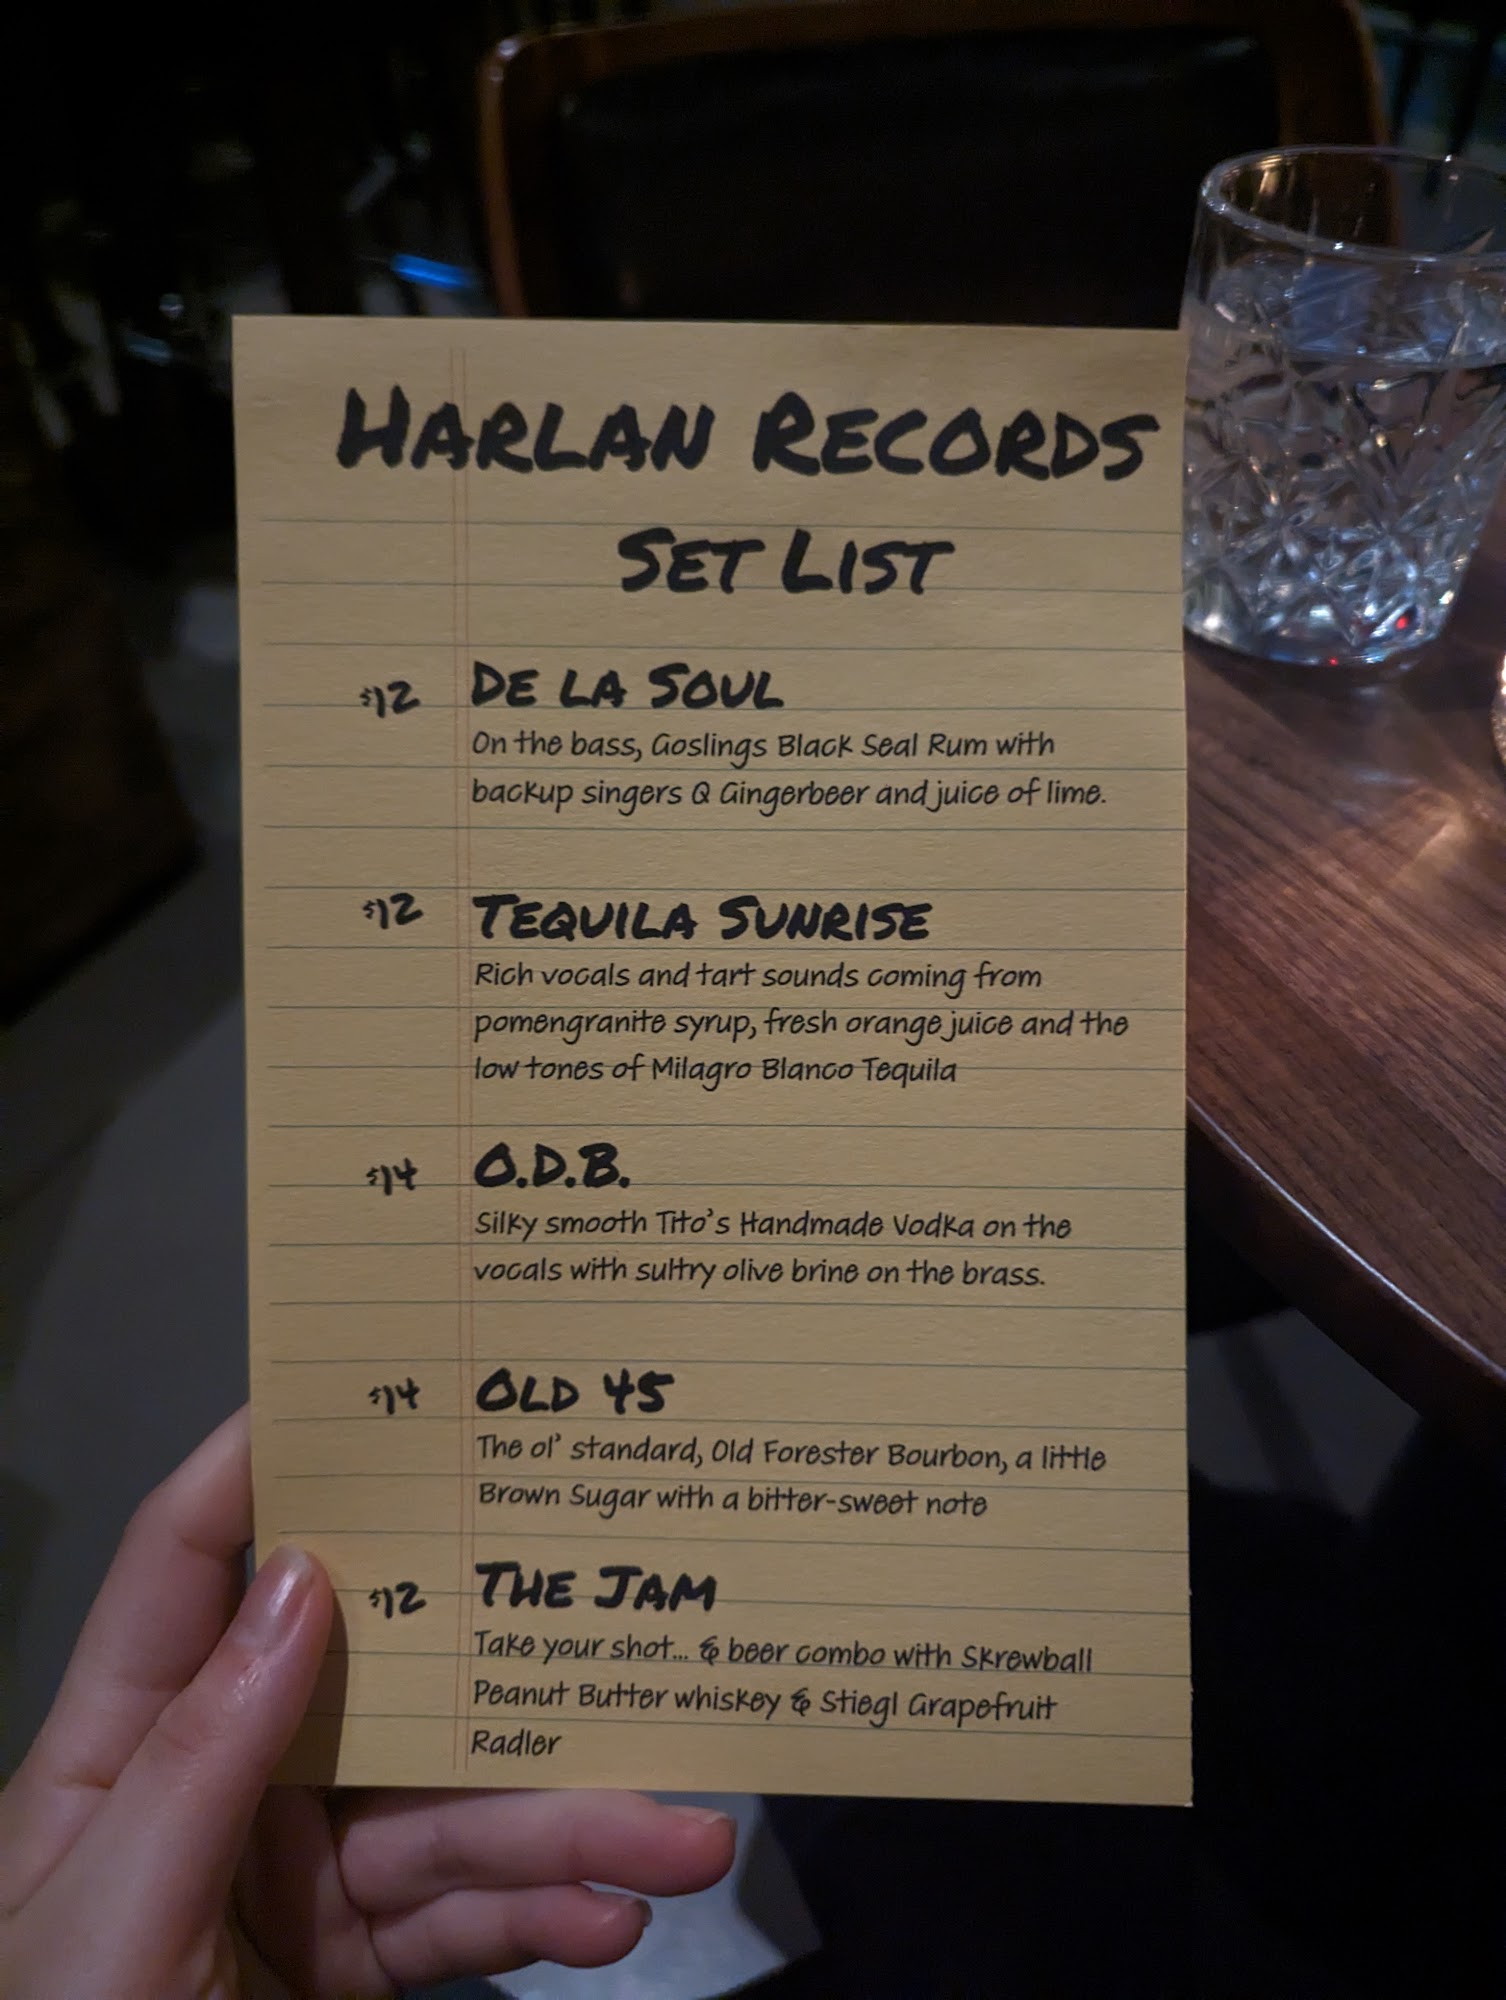 HARLAN RECORDS
SET LIST
$12 DE LA SOUL
On the bass, Goslings Black Seal Rum with
backup singers Q Gingerbeer and juice of lime.
$12 TEQUILA SUNRISE
Rich vocals and tart sounds coming from
pomengranite syrup, fresh orange juice and the
low tones of Milagro Blanco Tequila
$14 O.D.B.
Silky smooth Tito's Handmade Vodka on the
vocals with sultry olive brine on the brass.
$14 OLD 45
The ol' standard, Old Forester Bourbon, a little
Brown Sugar with a bitter-sweet note
$12 THE JAM
Take your shot... & beer combo with Skrewball
Peanut Butter whiskey & Stiegl Grapefruit
Radler